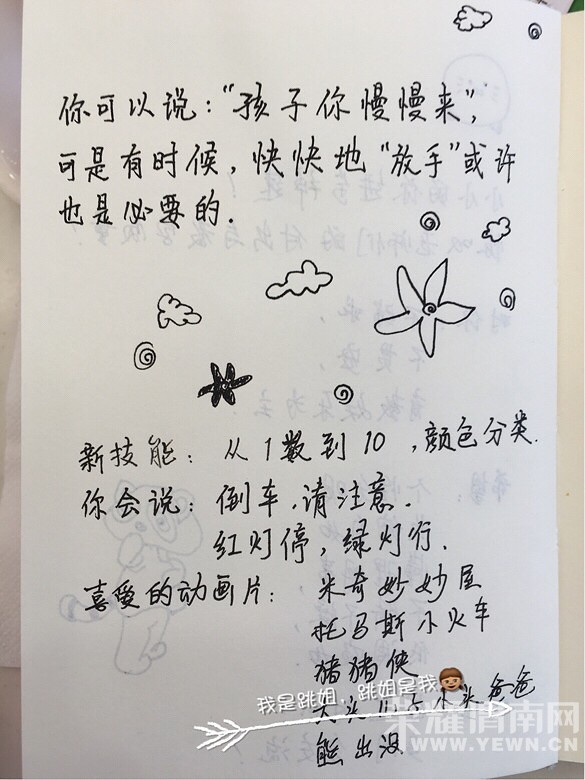 你可以说:“孩子你慢慢来”,
可是有时候,快快地“放手”或许
也是必要的.
新技能: 从1数到10,颜色分类.
你会说: 倒车,请注意.
红灯停,绿灯行.
喜爱的动画片: 米奇妙妙屋
托马斯小火车
猪猪侠
我是跳姐,跳姐是我
大头儿子小头爸爸
熊出没
荣耀渭南网
WWW.YEWN.CN